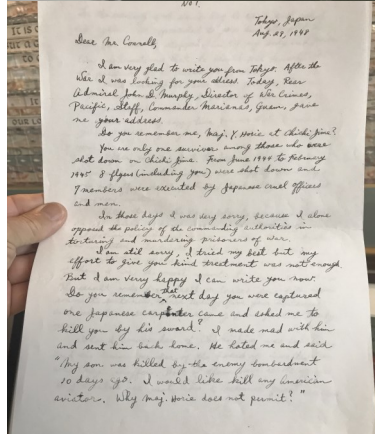 No 1.
Tokyo, Japan
Aug. 29, 1948
Dear Mr. Connell,
I am very glad to write you from Tokyo. After the
War I was looking for your address. Today, Rear
Admiral John D. Murphy, Director of War Crimes,
Pacific, Staff, Commander Marianas, Guam, gave
me your address.
Do you remember me, Maj. Y. Horie at Chichi Jima?
You are only one survivor among those who were
slot down on Chichi Jima. From June 1944 to February
1945 8 flyers (including you) were shot down and
7 members were executed by Japanese and officers
and men.
In those days I was very sorry, because I alone
opposed the policy of the commanding authorities in
torturing and murdering prisoners of war.
I am still sorry, I tried my best but my
effort to give you kind treatment was not enough.
But I am very happy I can write you now.
Do you remember that next day you were captured
one Japanese carpenter came and asked me to
kill you by his sword? I made mad with him
and sent him back home. He hated me and said
"My son was killed by the enemy bombardment
10 days ago. I would like kill any American
aviator. Why Maj. Horie does not permit?"